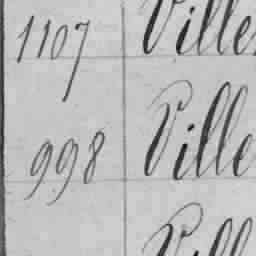 1107 Ville
998 Ville
Vill